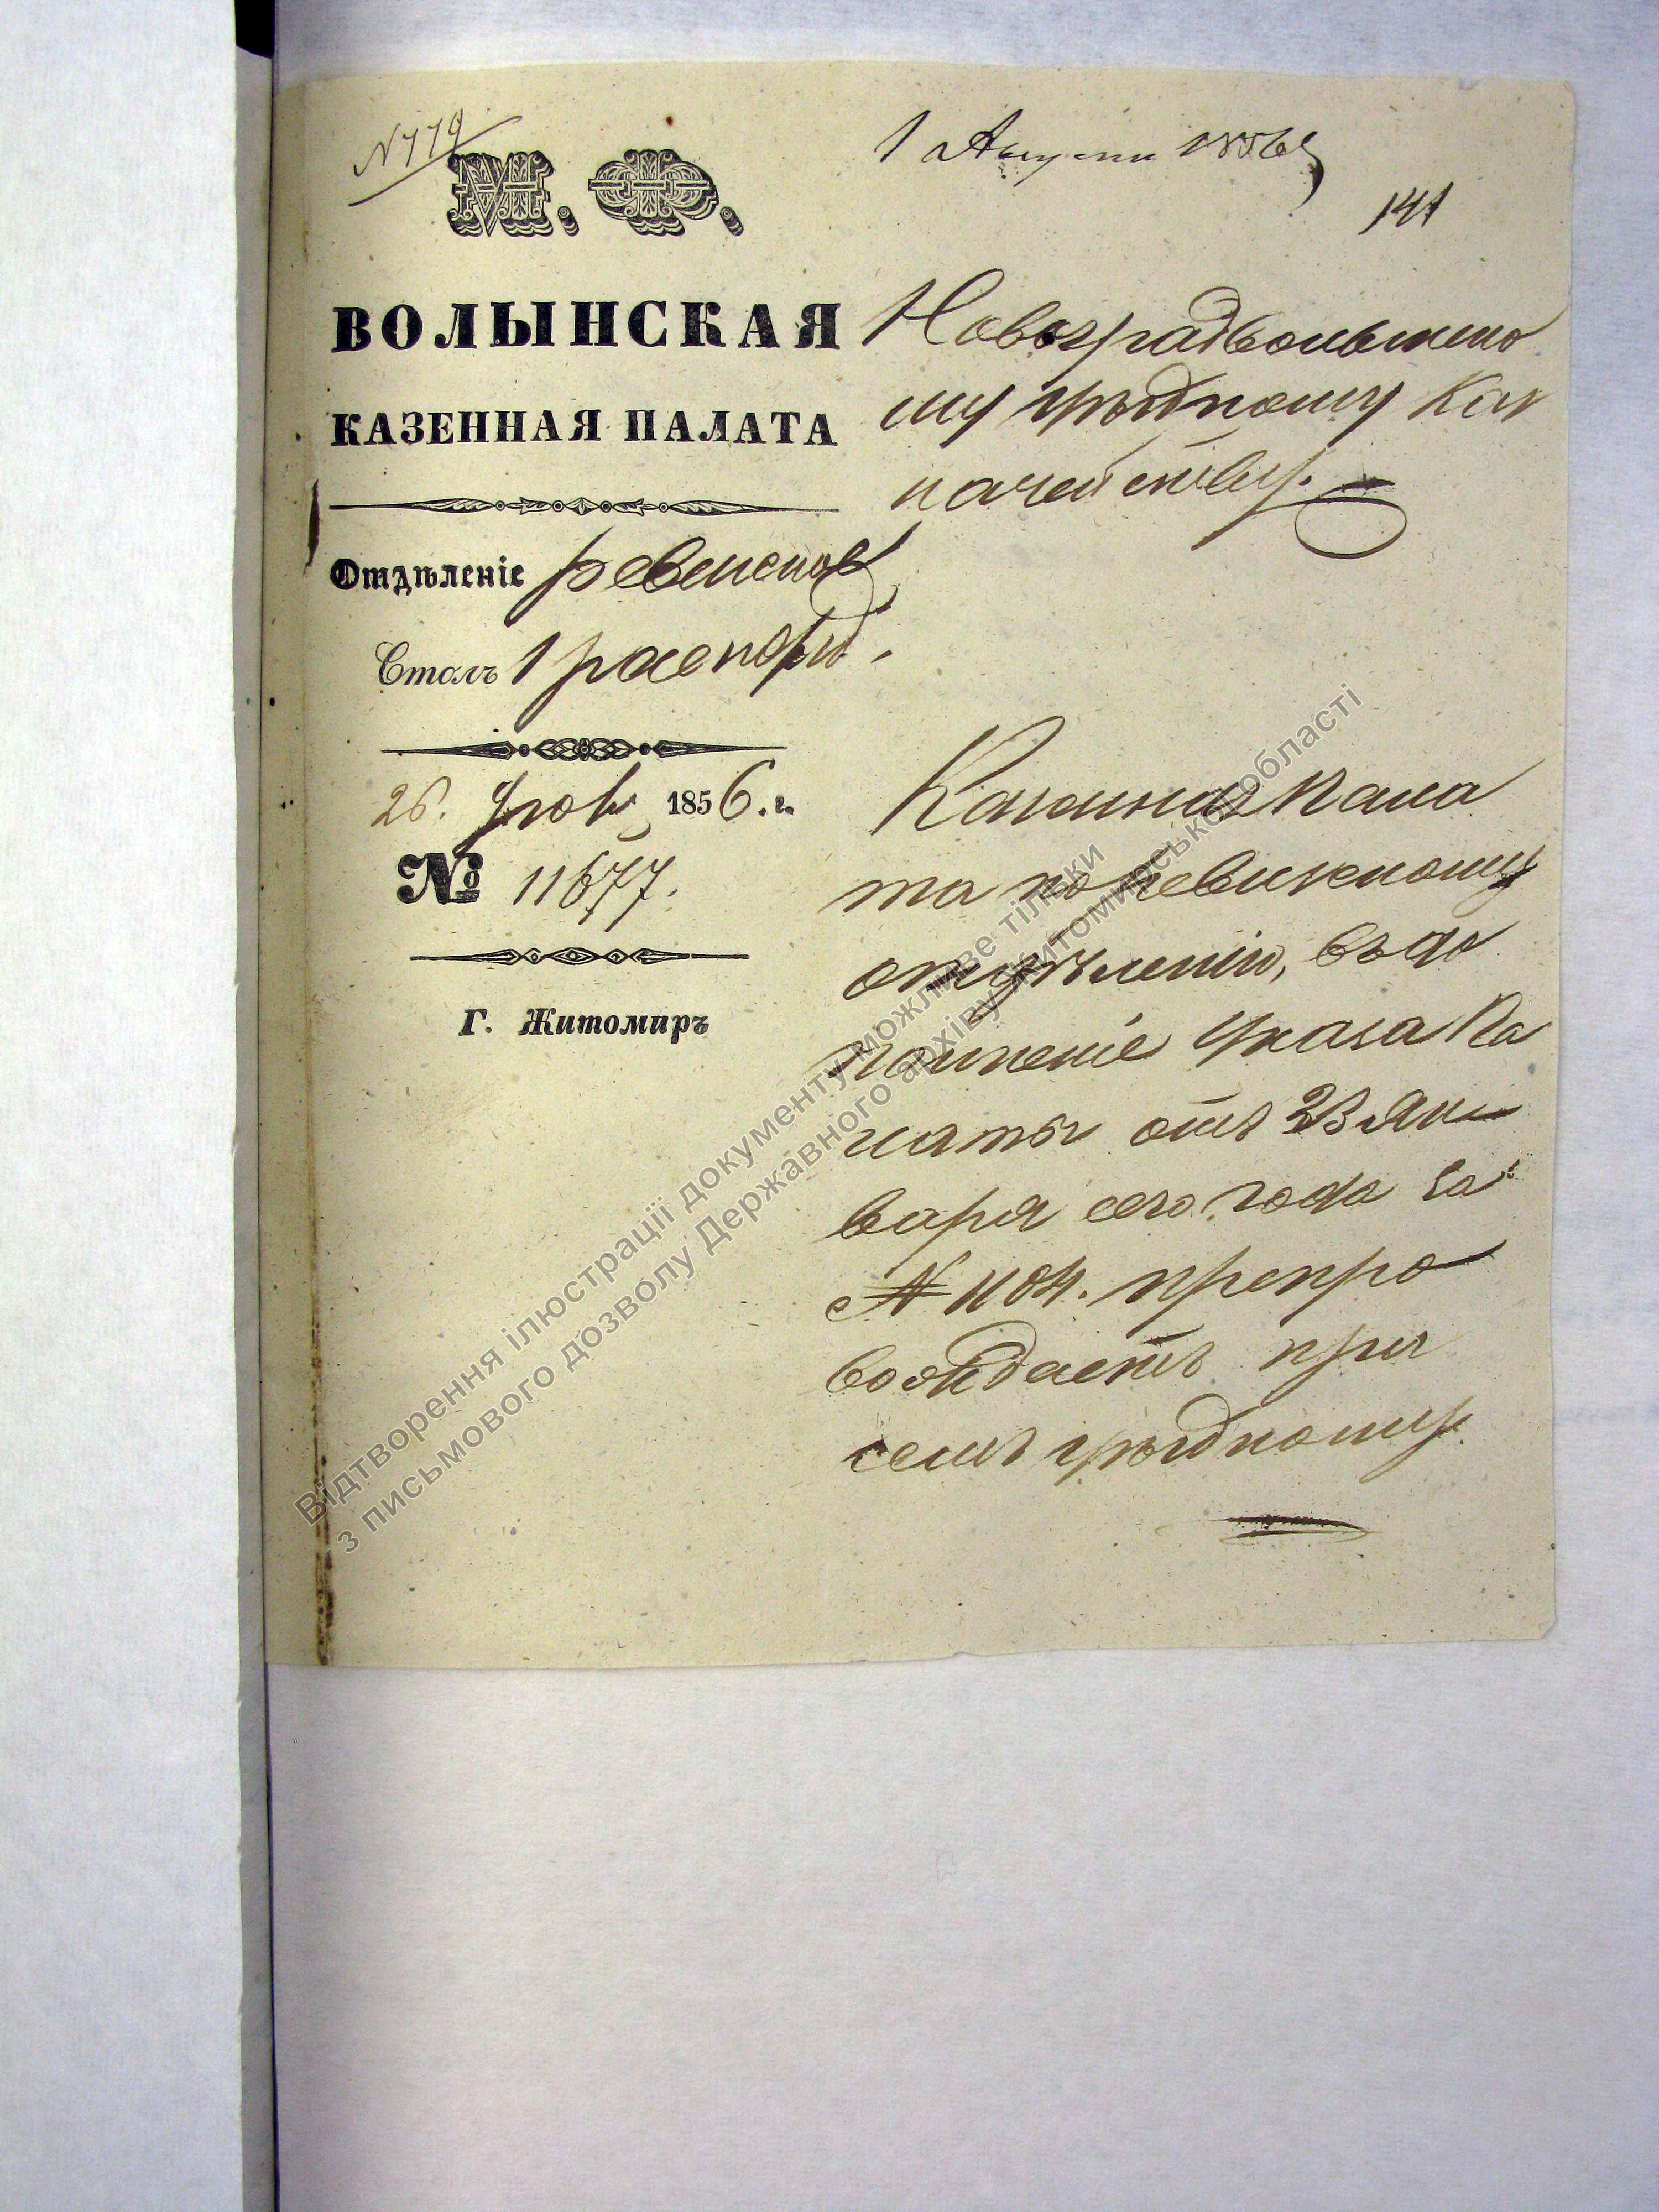 N 779
1 Августа 1856 г
141
М. Ф.
ВОЛЫНСКАЯ
КАЗЕННАЯ ПАЛАТА
Отдѣленіе ревизское
Столъ 1 распоряд.
26. Іюля 1856. г.
№ 11677.
Г. Житомиръ
Новоградволынско
му уѣздному Каз
начейству.
Казенная Пала
та по Ревизскому
отдѣленію, въ до
полненіе Указа Па
латы отъ 23 Ян
варя сего года за
№ 1104. препро
вождаетъ при
семъ уѣздному
Відтворення ілюстрації документу можливе тільки
з письмового дозволу Державного архіву Житомирської області